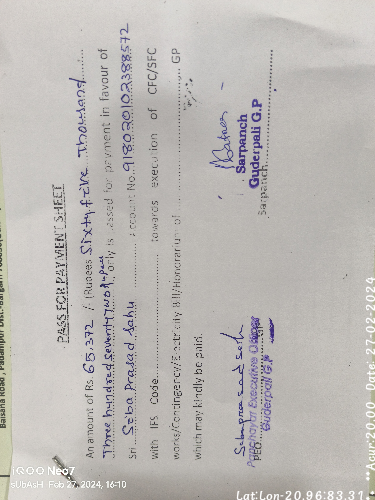 PASS FOR PAYMENT SHEET
An amount of Rs 65,372 / (Rupees Sixty five Thousand
Three hundred seventy two Rupees, only is passed for payment in favour of
Sri Seba Prasad Sahu Account No. 918020102388572
with IFS Code............ towards execution of CFC/SFC
works/Contingency/Electricity Bill/Honorarium of ............ GP
which may kindly be paid.
Sarpanch
Guderpali G.P
Sarpanch
Panchayat Executive Officer
Guderpali G.P
iQOO Neo7
SUbAsH Feb 27, 2024, 16:10
Date 27-02-2024
Lat:Lon-20.96:83.31